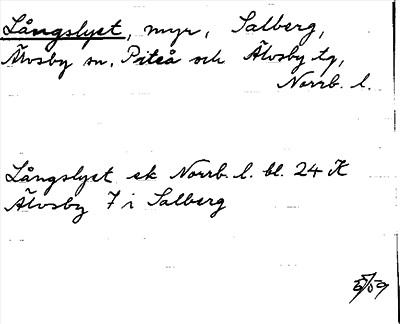 Långslyet, myr, Salberg,
Älvsby sn, Piteå och Älvsby tg,
Norrb. l.
Långslyet ek Norrb. l. bl. 24 K
Älvsby 7 i Salberg